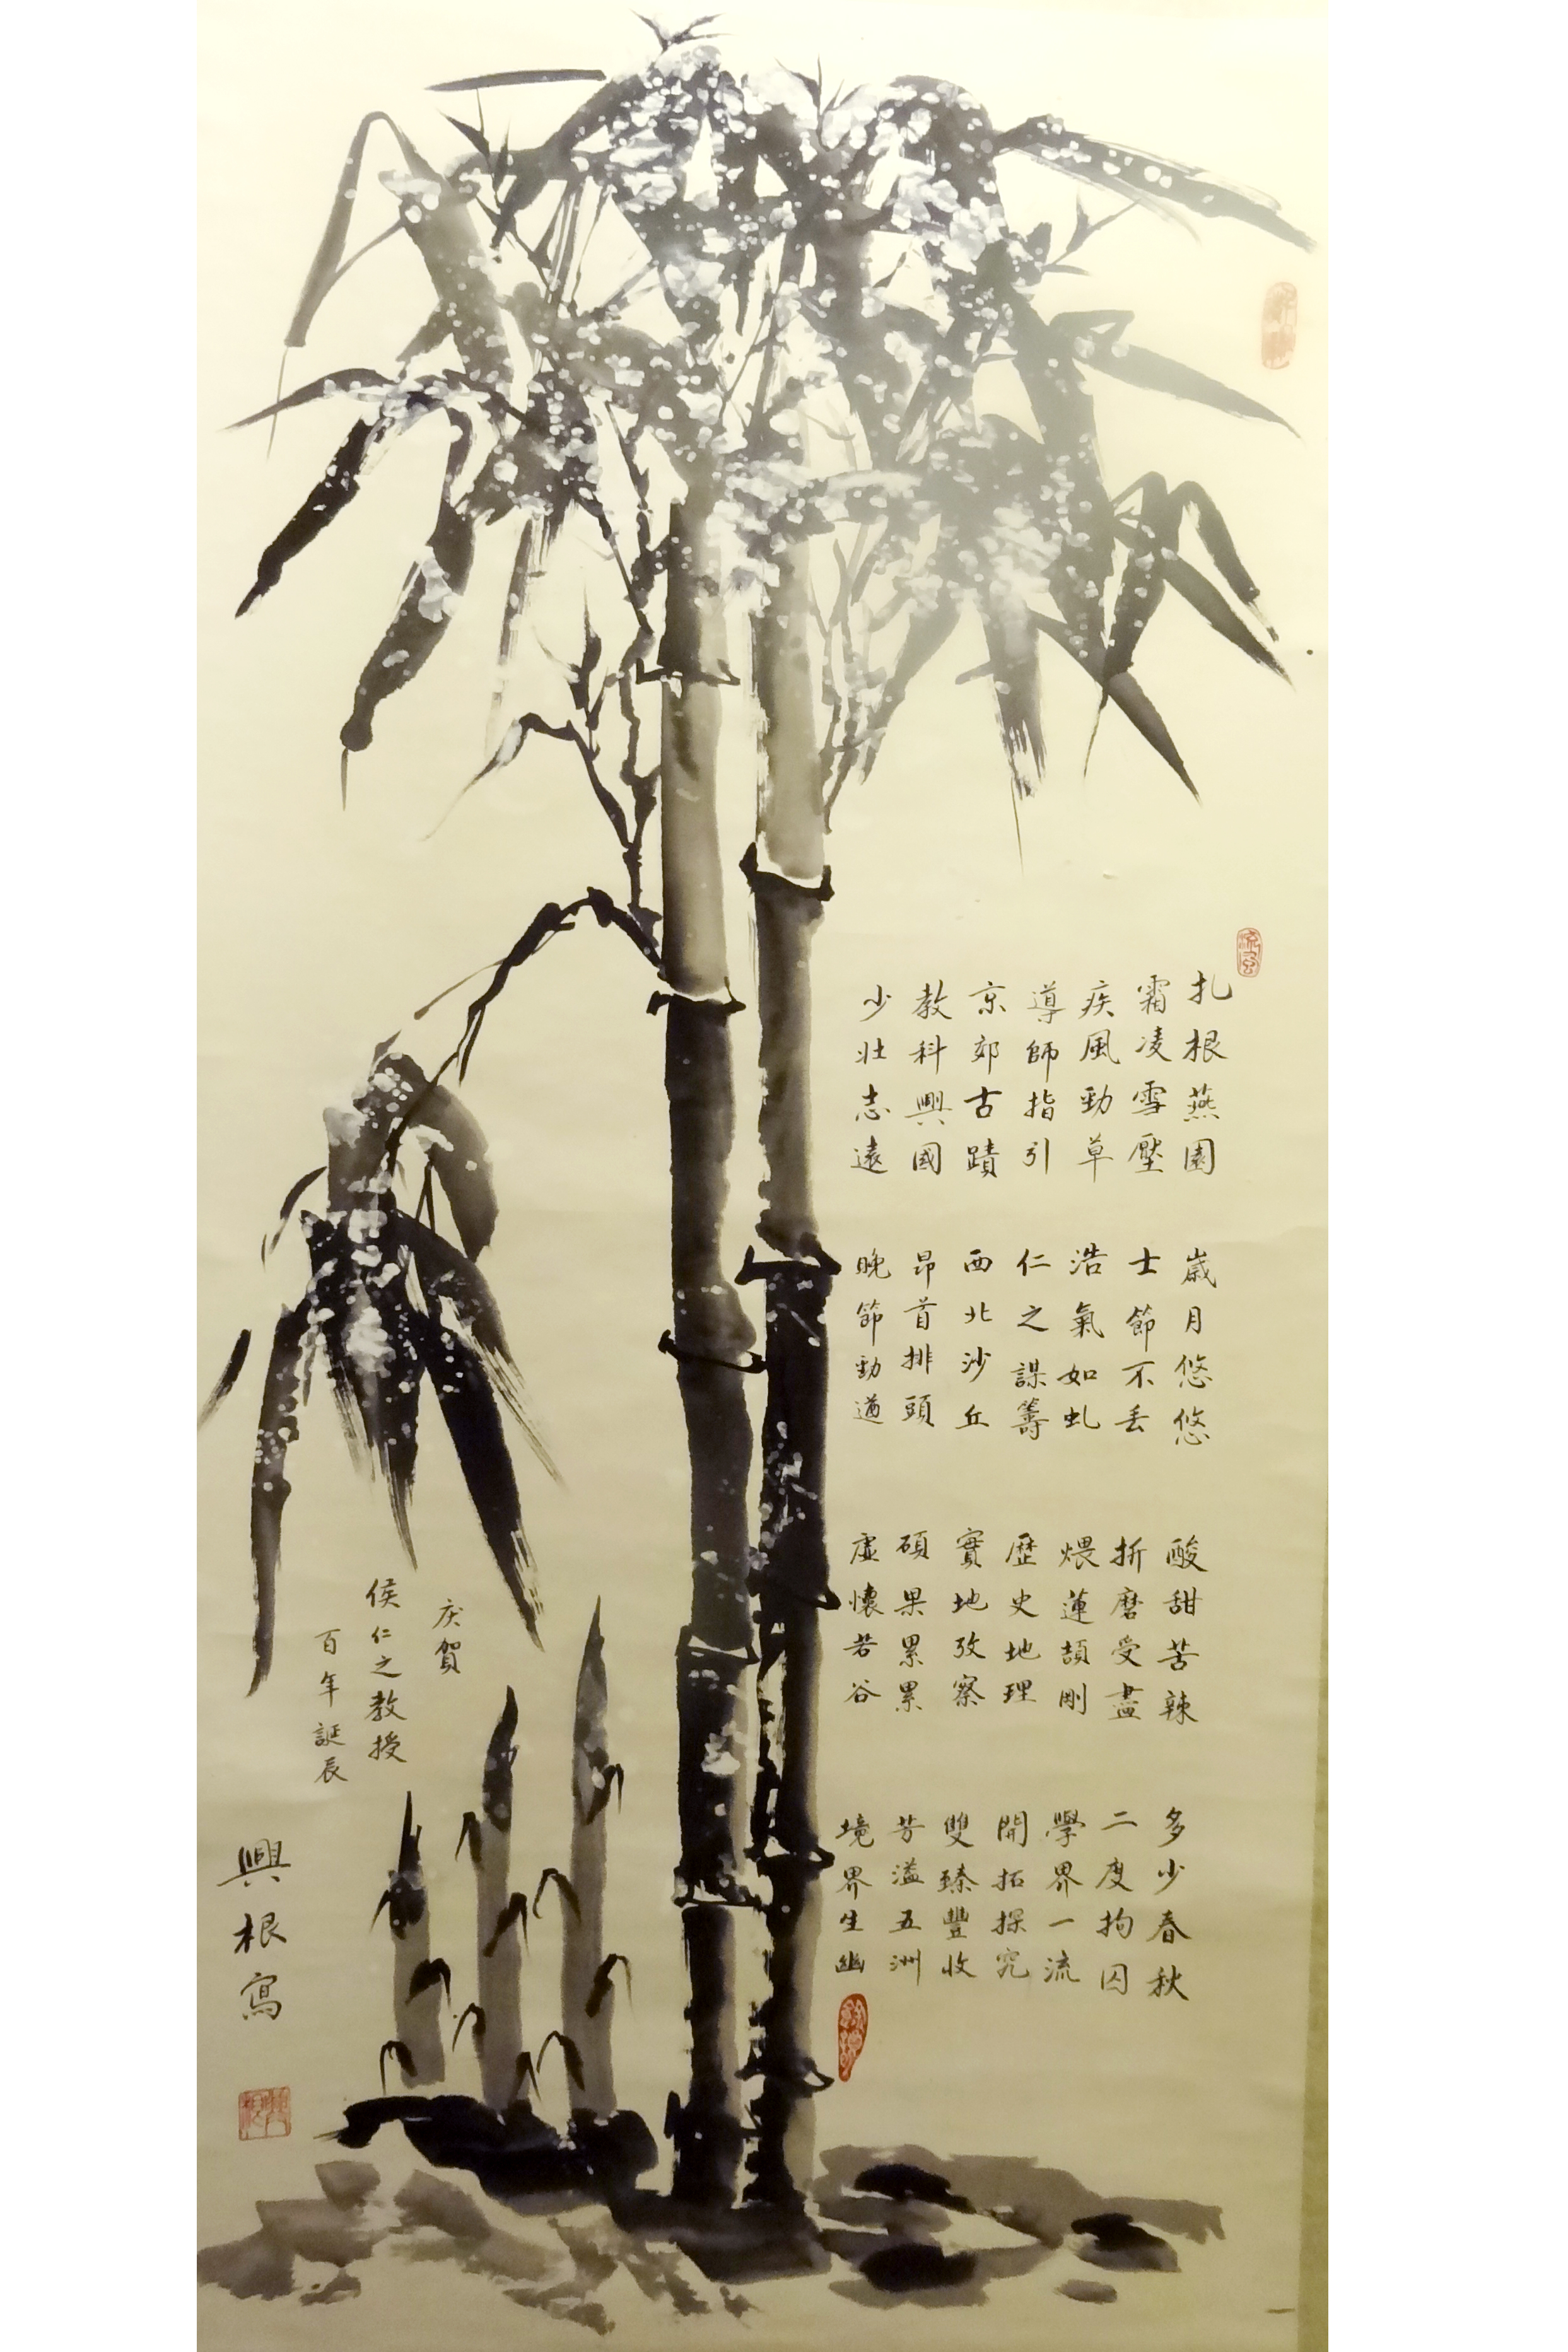 扎根燕園 歲月悠悠 酸甜苦辣 多少春秋
霜凌雪壓 士節不丟 折磨受盡 二度拘囚
疾風勁草 浩氣如虬 煨蓮頡剛 學界一流
導師指引 仁之謀籌 歷史地理 開拓探究
京郊古蹟 西北沙丘 實地攷察 雙臻豐收
教科興國 昂首排頭 碩果累累 芳溢五洲
少壯志遠 晚節勁遒 虛懷若谷 境界生幽
庆賀
侯仁之教授
百年誕辰
興根寫